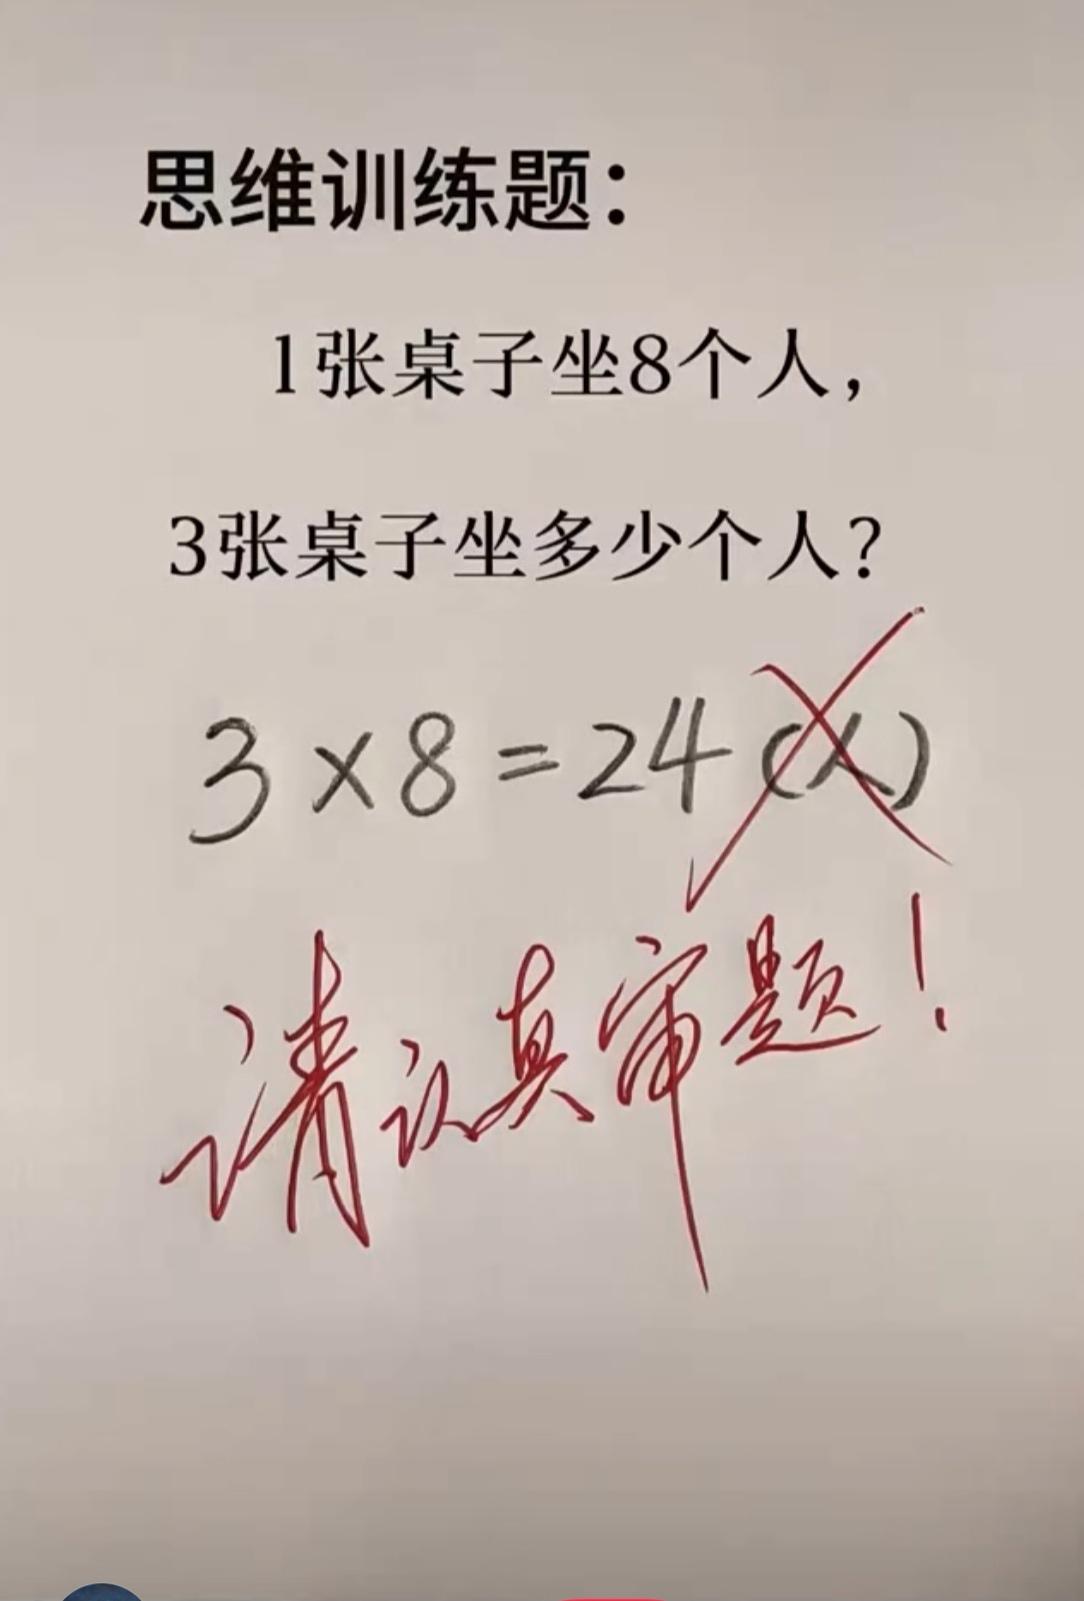 思维训练题：
1张桌子坐8个人，
3张桌子坐多少个人？
3×8=24(人)
请认真审题！